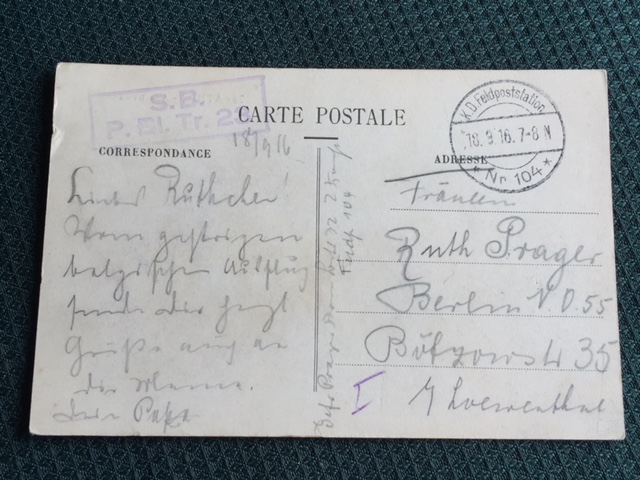 S.B.
P. Bl. Tr. 23
CARTE POSTALE
18/9 16
CORRESPONDANCE
ADRESSE
K.D. Feldpoststation
18.9.16. 7-8 N
* Nr 104 *
Liebes Ruthchen!
Vom gestrigen
belgischen Ausflug
sende Dir herzl
Grüße auch an
die Mama.
Dein Papa
Fräulein
Ruth Prager
Berlin N.O. 55
Bötzowstr 35
b/ Loewenthal
Prager
Feldp 104
I